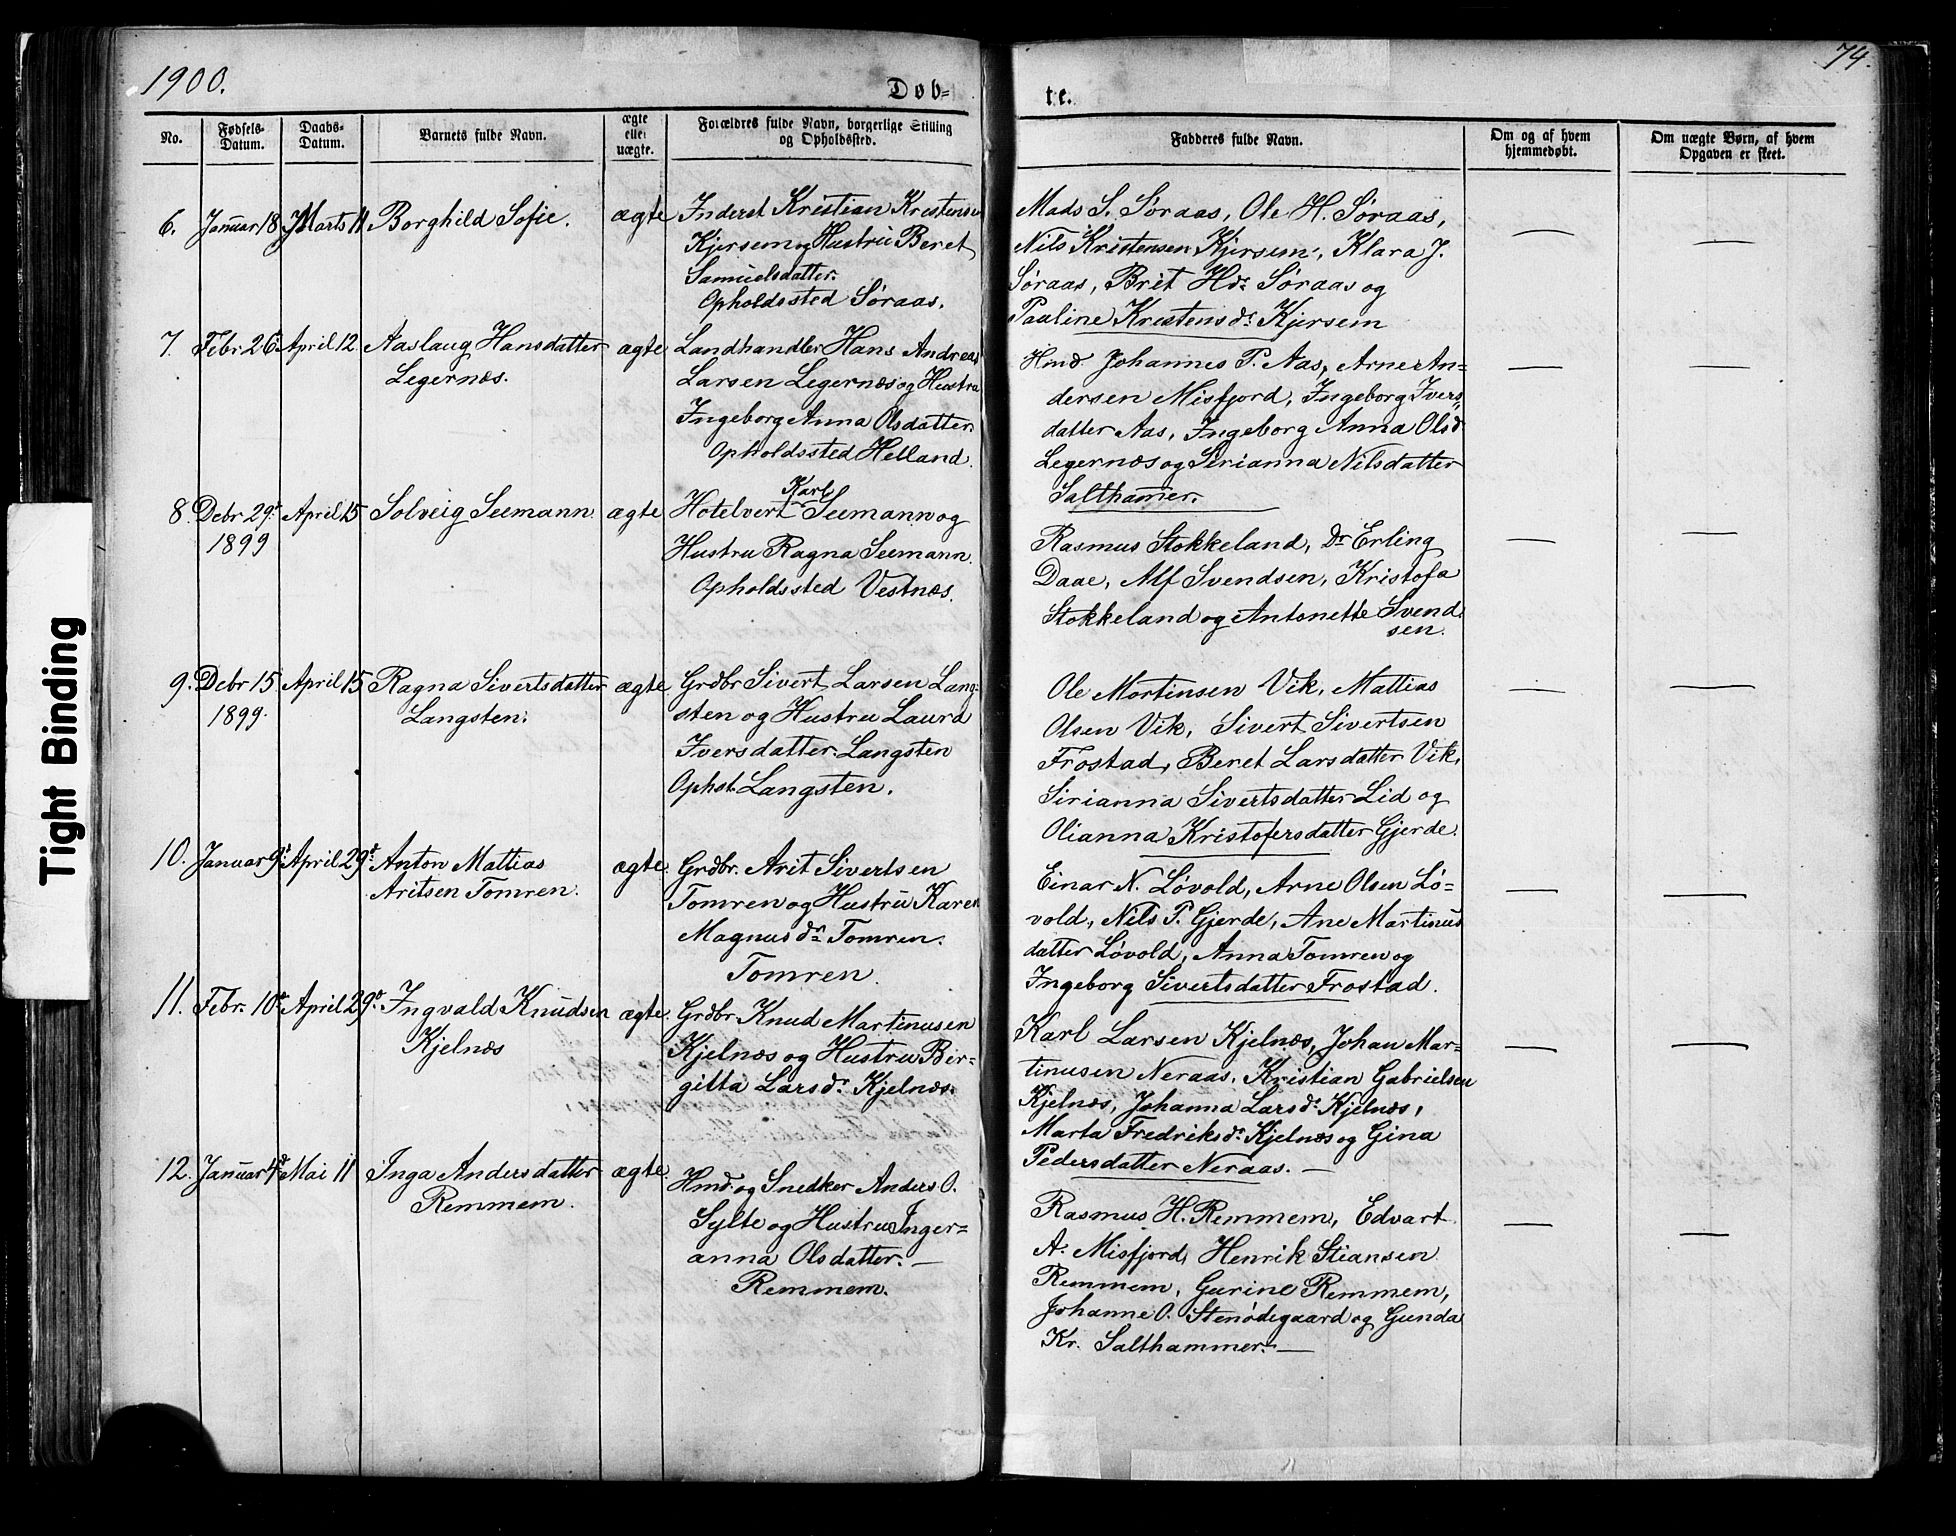 1900.
Døb=
No.
Fødsels-
Datum.
Daabs-
Datum.
Barnets fulde Navn.
ægte
eller
uægte.
Forældres fulde Navn, borgerlige Stilling
og Opholdssted.
6. Januar 18 Marts 11 Borghild Sofie. ægte Inderst Kristian Kristensen
Kjersem og Hustru Beret
Samuelsdatter.
Opholdssted Søraas.
7. Febr 26 April 12 Aaslaug Hansdatter ægte Landhandler Hans Andreas
Legernæs. Larsen Legernæs og Hustru
Ingeborg Anna Olsdatter.
Opholdssted Helland.
Karl
8. Debr 29. April 15 Solveig Seemann ægte Hotelvert Seemann og
1899 Hustru Ragna Seemann.
Opholdssted Vestnæs.
9. Debr 15 April 15 Ragna Sivertsdatter ægte Grdbr Sivert Larsen Lang-
1899. Langsten. sten og Hustru Laura
Iversdatter Langsten
Ophst. Langsten.
10. Januar 9d April 29d. Anton Mattias ægte. Grdbr. Arit Sivertsen
Aritsen Tomren. Tomren og Hustru Karen
Magnusdr Tomren.
Tomren.
11. Febr. 10d April 29d. Ingvald Knudsen ægte. Grdbr. Knud Martinusen
Kjelnæs Kjelnæs og Hustru Ber-
gitta Larsdr Kjelnæs.
12. Januar 4d Mai 11 Inga Andersdatter ægte. Hmd. og Snedker Anders O.
Remmem. Sylte og Hustru Inger=
anna Olsdatter. —
Remmem.
74.
te.
Fadderes fulde Navn.
Om og af hvem
hjemmedøbt.
Om uægte Børn, af hvem
Opgaven er skeet.
Mads S. Søraas, Ole H. Søraas, — —
Nils Kristensen Kjersem, Klara J.
Søraas, Brit Hdr Søraas og
Pauline Kristensdr Kjersem
Hmd Johannes P. Aas, Arne An= — —
dersen Misfjord, Ingeborg Ivers=
datter Aas, Ingeborg Anna Olsd
Legernæs og Sirianna Nilsdatter
Salthamer.
Rasmus Stokkeland, Dr Erling — —
Daae, Alf Svendsen, Kristofa
Stokkeland og Antonette Svend
sen.
Ole Mortinsen Vik, Mattias — —
Olsen Vik, Sivert Sivertsen
Frostad, Beret Larsdatter Vik,
Sirianna Sivertsdatter Lid og
Olianna Kristofersdatter Gjerde.
Einar N. Løvold, Arne Olsen Lø= — —
vold, Nils P. Gjerde, Ane Martinus
datter Løvold, Anna Tomren og
Ingeborg Sivertsdatter Frostad.
Karl Larsen Kjelnæs, Johan Mar= — —
tinusen Neraas, Kristian Gabrielsen
Kjelnæs, Johanna Larsdr Kjelnæs,
Marta Fredriksdr Kjelnæs og Gina
Pedersdatter Neraas. —
Rasmus H. Remmem, Edvart — —
A. Misfjord, Henrik Stiansen
Remmem, Gurine Remmem,
Johanne O. Stenødegaard og Gunda
Kr. Salthammer. —
Tight Binding